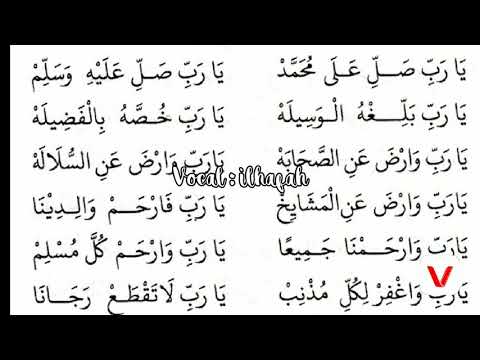 يَا رَبِّ صَلِّ عَلَى مُحَمَّدْ يَا رَبِّ صَلِّ عَلَيْهِ وَسَلِّمْ
يَا رَبِّ بَلِّغْهُ الْوَسِيلَهْ يَا رَبِّ خُصَّهُ بِالْفَضِيلَهْ
يَا رَبِّ وَارْضَ عَنِ الصَّحَابَهْ يَا رَبِّ وَارْضَ عَنِ السُّلَالَهْ
Vocal : ilhaqah
يَا رَبِّ وَارْضَ عَنِ الْمَشَايِخْ يَا رَبِّ فَارْحَمْ وَالِدِيْنَا
يَا رَبِّ وَارْحَمْنَا جَمِيعًا يَا رَبِّ وَارْحَمْ كُلَّ مُسْلِمْ
يَا رَبِّ وَاغْفِرْ لِكُلِّ مُذْنِبْ يَا رَبِّ لَا تَقْطَعْ رَجَانَا